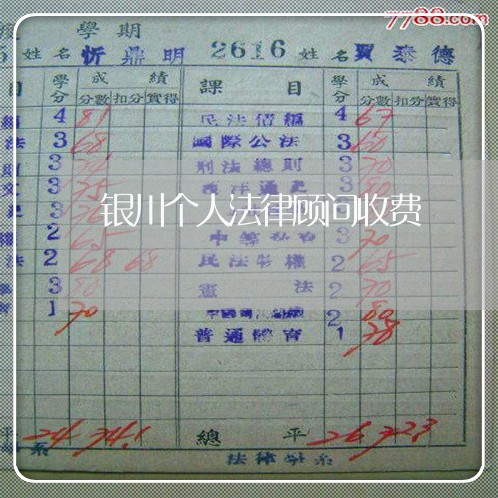 7788.com
學期
5 姓名 忻鼎明 2616 姓名 賈泰德
目 學分 成績 課目 學分 成績
分數 扣分 實得 分數 扣分 實得
4 81 民法債編 4 67
法 3 68 國際公法 3 60
3 刑法總則 3 70
3 75 3 80
银川个人法律顾问收费
3 76
權 2 65 3 70
法 2 68 68 民法物權 2 65
3 80 憲法 2 70
1 70 2 80
普通體育 1 78
平 24 74.1 總平 26 72.3
系 法律學系